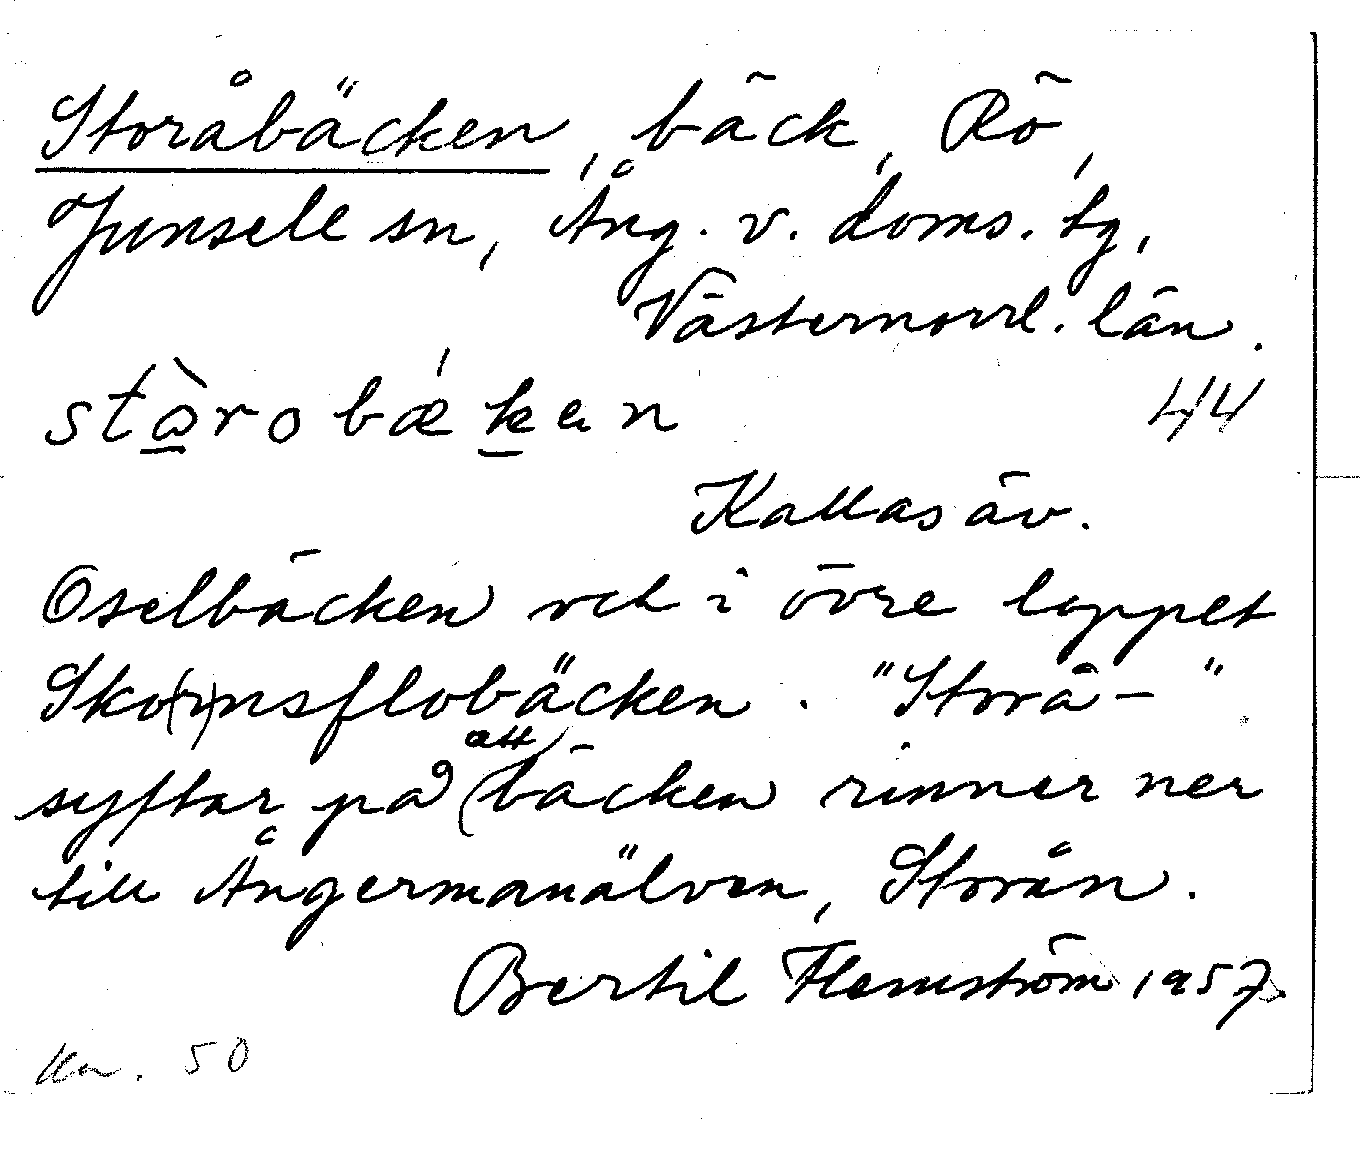 Storåbäcken, bäck, Rö,
Junsele sn, Ång. v. doms. tg,
Västernorrl. län.
stòrobǽkan 44
Kallas äv.
Oselbäcken och i övre loppet
Sko(r)nsflobäcken. "Storå-"
syftar på att bäcken rinner ner
till Ångermanälven, Storån.
Bertil Flemström 1957.
Kn. 50